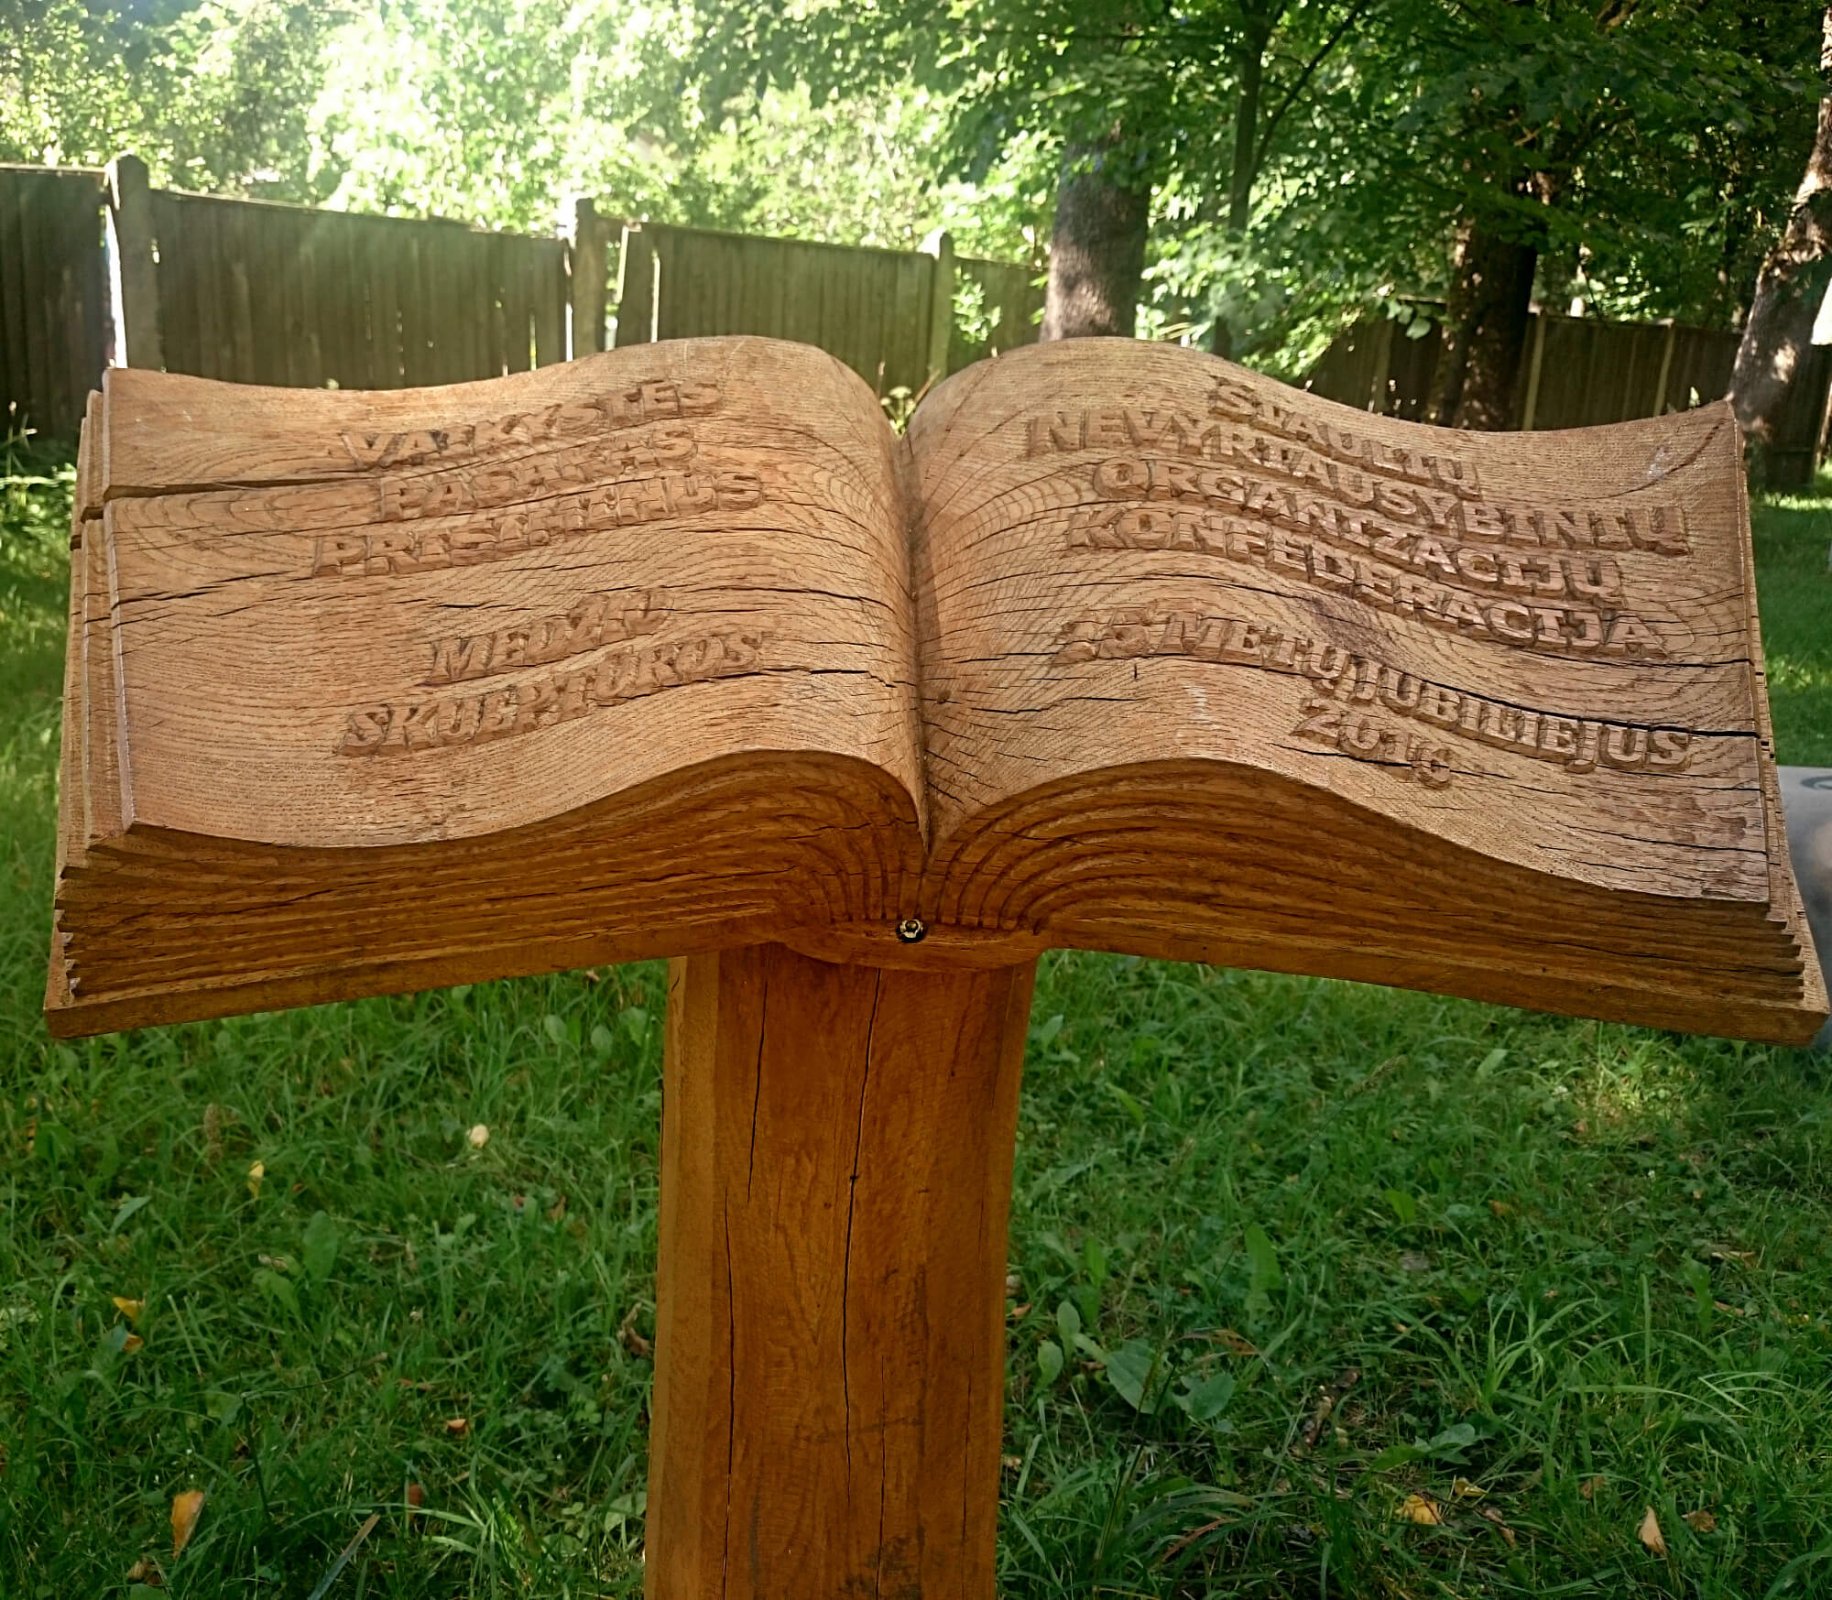 VAIKYSTĖS
PASAKAS
PRISIMINUS
MEDŽIO
SKULPTŪROS
ŠIAULIŲ
NEVYRIAUSYBINIŲ
ORGANIZACIJŲ
KONFEDERACIJA
15 METŲ JUBILIEJUS
2016